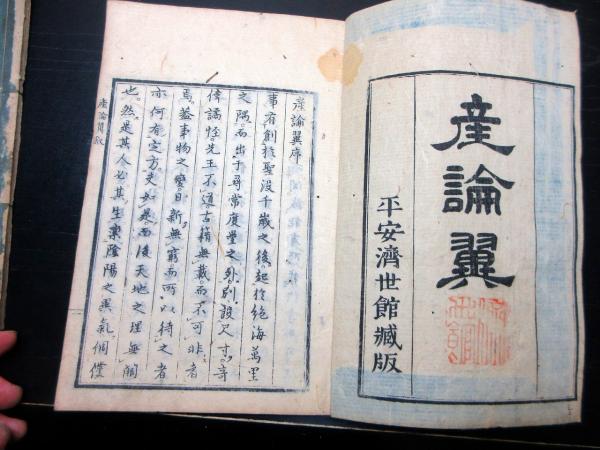 産論翼
平安濟世館藏版
産論翼序
事有創於聖没千歳之後起於絶海萬里
之隅而出于尋常度量之外別設尺寸奇
偉譎怪先王不道古籍無載而不可非者
焉蓋事物之變日新無窮而所以待之者
亦何有定方夫如是而後天地之理無闕
也然是其人必其生稟陰陽之異氣倜儻